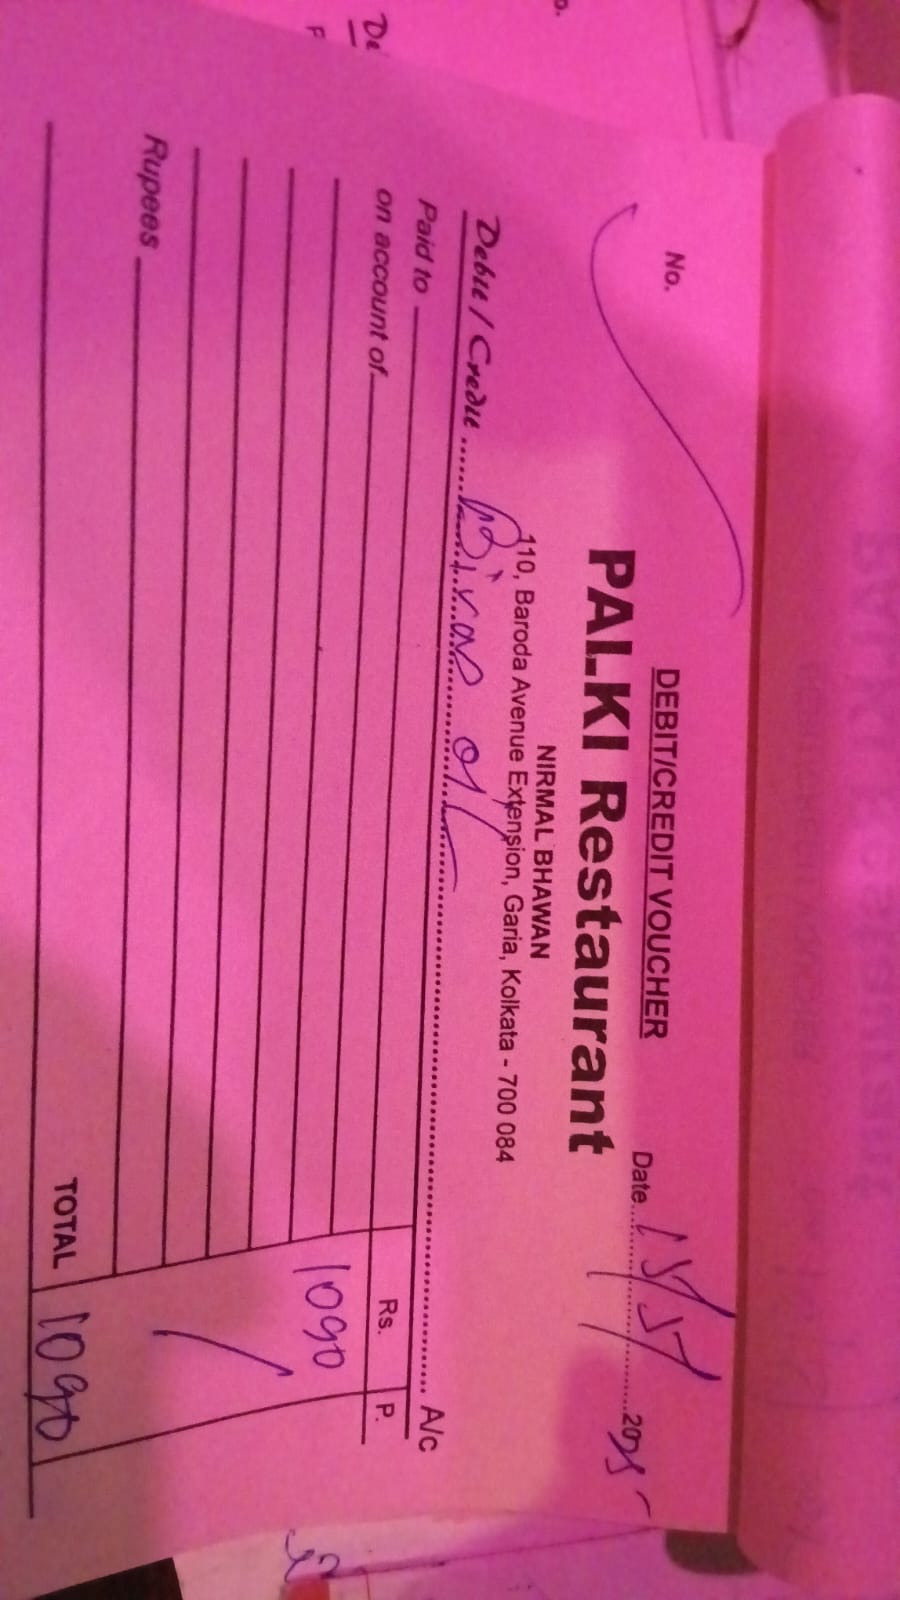 DEBIT/CREDIT VOUCHER
No.
Date 2025
PALKI Restaurant
NIRMAL BHAWAN
110, Baroda Avenue Extension, Garia, Kolkata - 700 084
Debit / Credit oil A/c
Paid to
on account of Rs. P.
1090
Rupees
TOTAL 1090